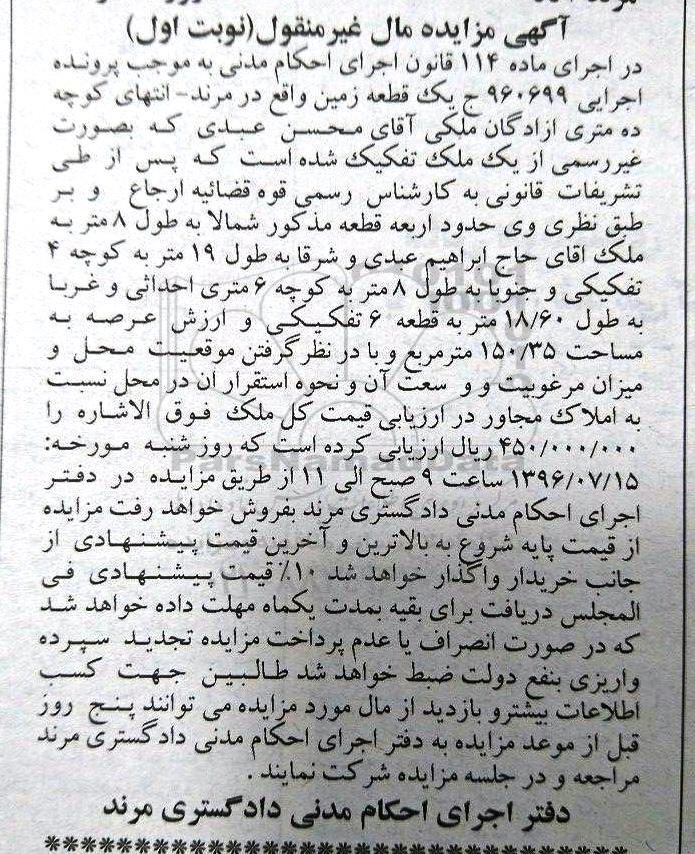 آگهی مزایده مال غیرمنقول(نوبت اول)
در اجرای ماده ۱۱۴ قانون اجرای احکام مدنی به موجب پرونده
اجرایی ۹۶۰۶۹۹ ج یک قطعه زمین واقع در مرند- انتهای کوچه
ده متری ازادگان ملکی آقای محسن عبدی که بصورت
غیررسمی از یک ملک تفکیک شده است که پس از طی
تشریفات قانونی به کارشناس رسمی قوه قضائیه ارجاع و بر
طبق نظری وی حدود اربعه قطعه مذکور شمالا به طول ۸ متر به
ملک اقای حاج ابراهیم عبدی و شرقا به طول ۱۹ متر به کوچه ۴
تفکیکی و جنوبا به طول ۸ متر به کوچه ۶ متری احداثی و غربا
به طول ۱۸/۶۰ متر به قطعه ۶ تفکیکی و ارزش عرصه به
مساحت ۱۵۰/۳۵ مترمربع و با در نظر گرفتن موقعیت محل و
میزان مرغوبیت و و سعت آن و نحوه استقرار ان در محل نسبت
به املاک مجاور در ارزیابی قیمت کل ملک فوق الاشاره را
۴۵۰/۰۰۰/۰۰۰ ریال ارزیابی کرده است که روز شنبه مورخه:
۱۳۹۶/۰۷/۱۵ ساعت ۹ صبح الی ۱۱ از طریق مزایده در دفتر
اجرای احکام مدنی دادگستری مرند بفروش خواهد رفت مزایده
از قیمت پایه شروع به بالاترین و آخرین قیمت پیشنهادی از
جانب خریدار واگذار خواهد شد ۱۰٪ قیمت پیشنهادی فی
المجلس دریافت برای بقیه بمدت یکماه مهلت داده خواهد شد
که در صورت انصراف یا عدم پرداخت مزایده تجدید سپرده
واریزی بنفع دولت ضبط خواهد شد طالبین جهت کسب
اطلاعات بیشترو بازدید از مال مورد مزایده می توانند پنج روز
قبل از موعد مزایده به دفتر اجرای احکام مدنی دادگستری مرند
مراجعه و در جلسه مزایده شرکت نمایند.
دفتر اجرای احکام مدنی دادگستری مرند